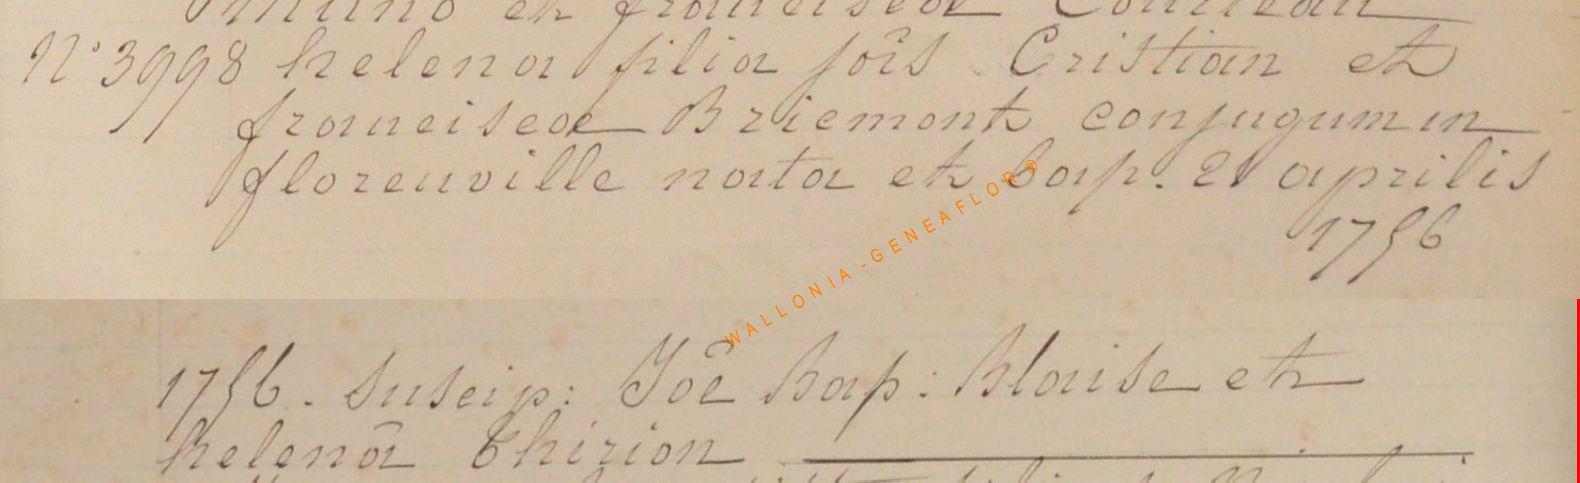 et francisca
N° 3998 helena filia jôis Cristian et
franciscæ Briemont conjugum in
florenville nata et bap. 21 aprilis
1756
WALLONIA-GENEAFLOR®
1756. Suscip: Jôe bap: Blaise et
helenâ Thirion